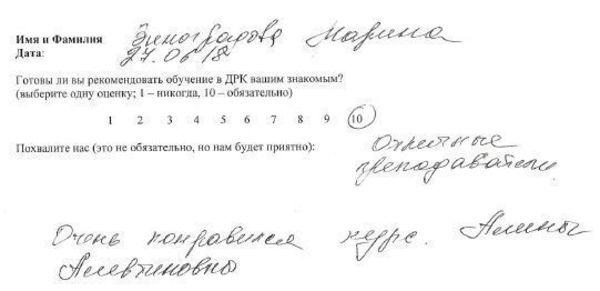 Имя и Фамилия Виноградова Марина
Дата: 27.06 18
Готовы ли вы рекомендовать обучение в ДРК вашим знакомым?
(выберите одну оценку; 1 – никогда, 10 – обязательно)
1 2 3 4 5 6 7 8 9 10
Похвалите нас (это не обязательно, но нам будет приятно): Отличные
преподаватели
Очень понравился курс. Алины
Алевтиновны